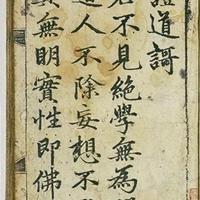 證道謌
君不見絕學無為
道人不除妄想不
無明實性即佛